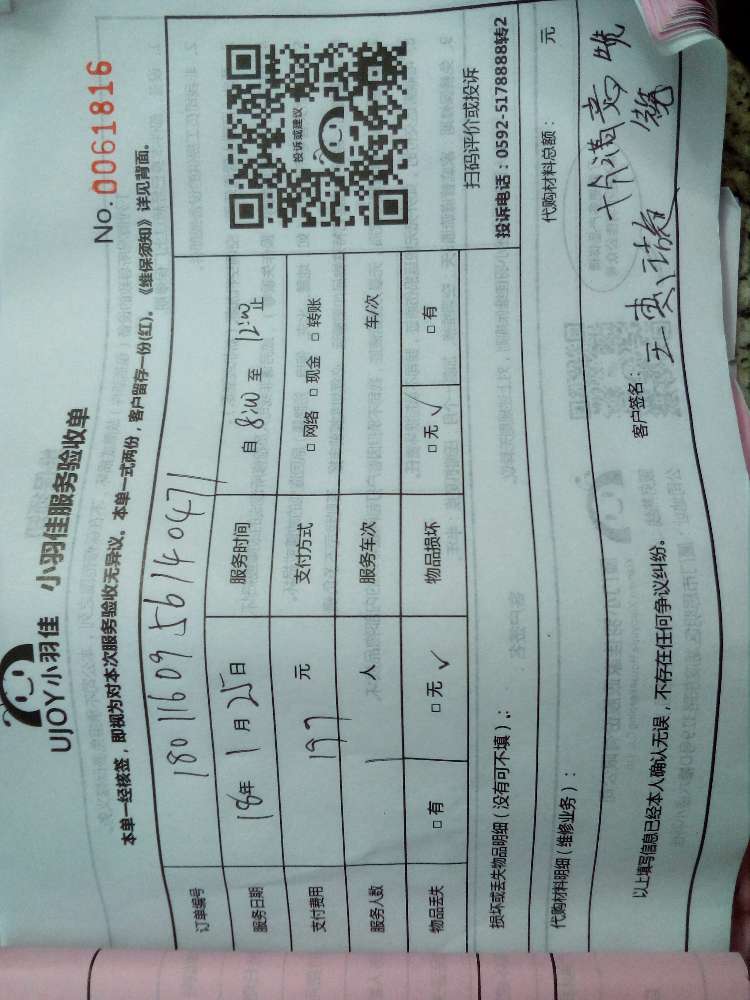 UJOY小羽佳 小羽佳服务验收单
No.0061816
本单一经核签，即视为对本次服务验收无异议。本单一式两份，客户留存一份(红)。《维保须知》详见背面。
订单编号 1801160956140471
服务日期 18年 1月 25日 服务时间 自 8:00 至 12:00 止
支付费用 197 元 支付方式 □ 网络 □ 现金 □ 转账
服务人数 1 人 服务车次 车/次
物品丢失 □ 有 □ 无 √ 物品损坏 □ 无 √ □ 有
投诉或建议
扫码评价或投诉
投诉电话：0592-5178888转2
损坏或丢失物品明细（没有可不填）：
代购材料明细（维修业务）： 代购材料总额： 元
十分满意
以上填写信息已经本人确认无误，不存在任何争议纠纷。 客户签名：